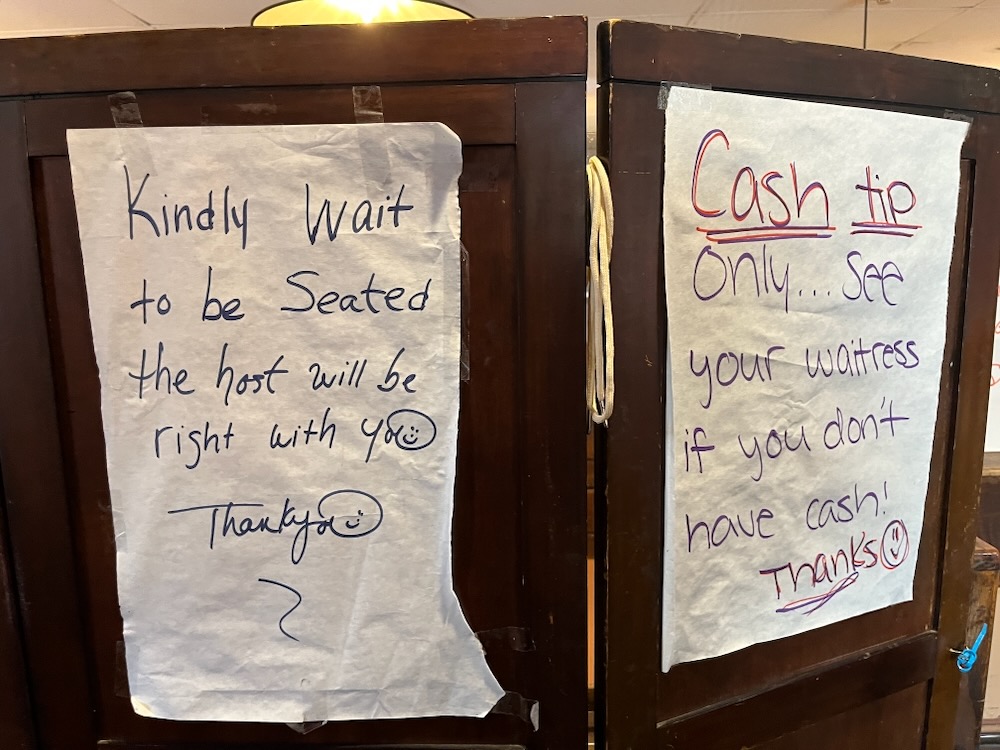 Kindly Wait
to be Seated
the host will be
right with you
Thank you
Cash tip
Only... See
your waitress
if you don't
have cash!
Thanks